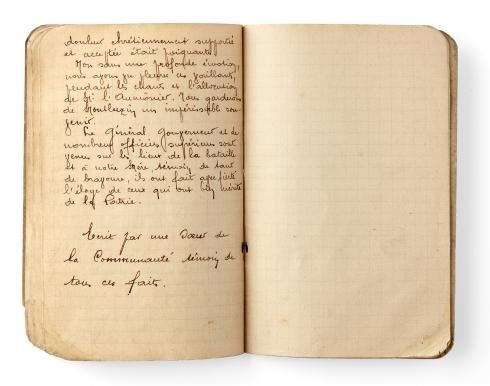 douleur chrétiennement supportée
et acceptée était poignante.
Non sans une profonde émotion,
nous avons pu pleurer ces vaillants,
pendant les chants et l'allocution
de Mr l'Aumônier. Nous garderons
de Montluzin un impérissable sou-
venir.
Le Général Gouverneur et de
nombreux officiers supérieurs sont
venus sur les lieux de la bataille
et à notre Mère, témoin de tant
de bravoure, ils ont fait
l'éloge de ceux qui ont bien mérité
de la Patrie.
Ecrit par une Sœur de
la Communauté témoin de
tous ces faits.